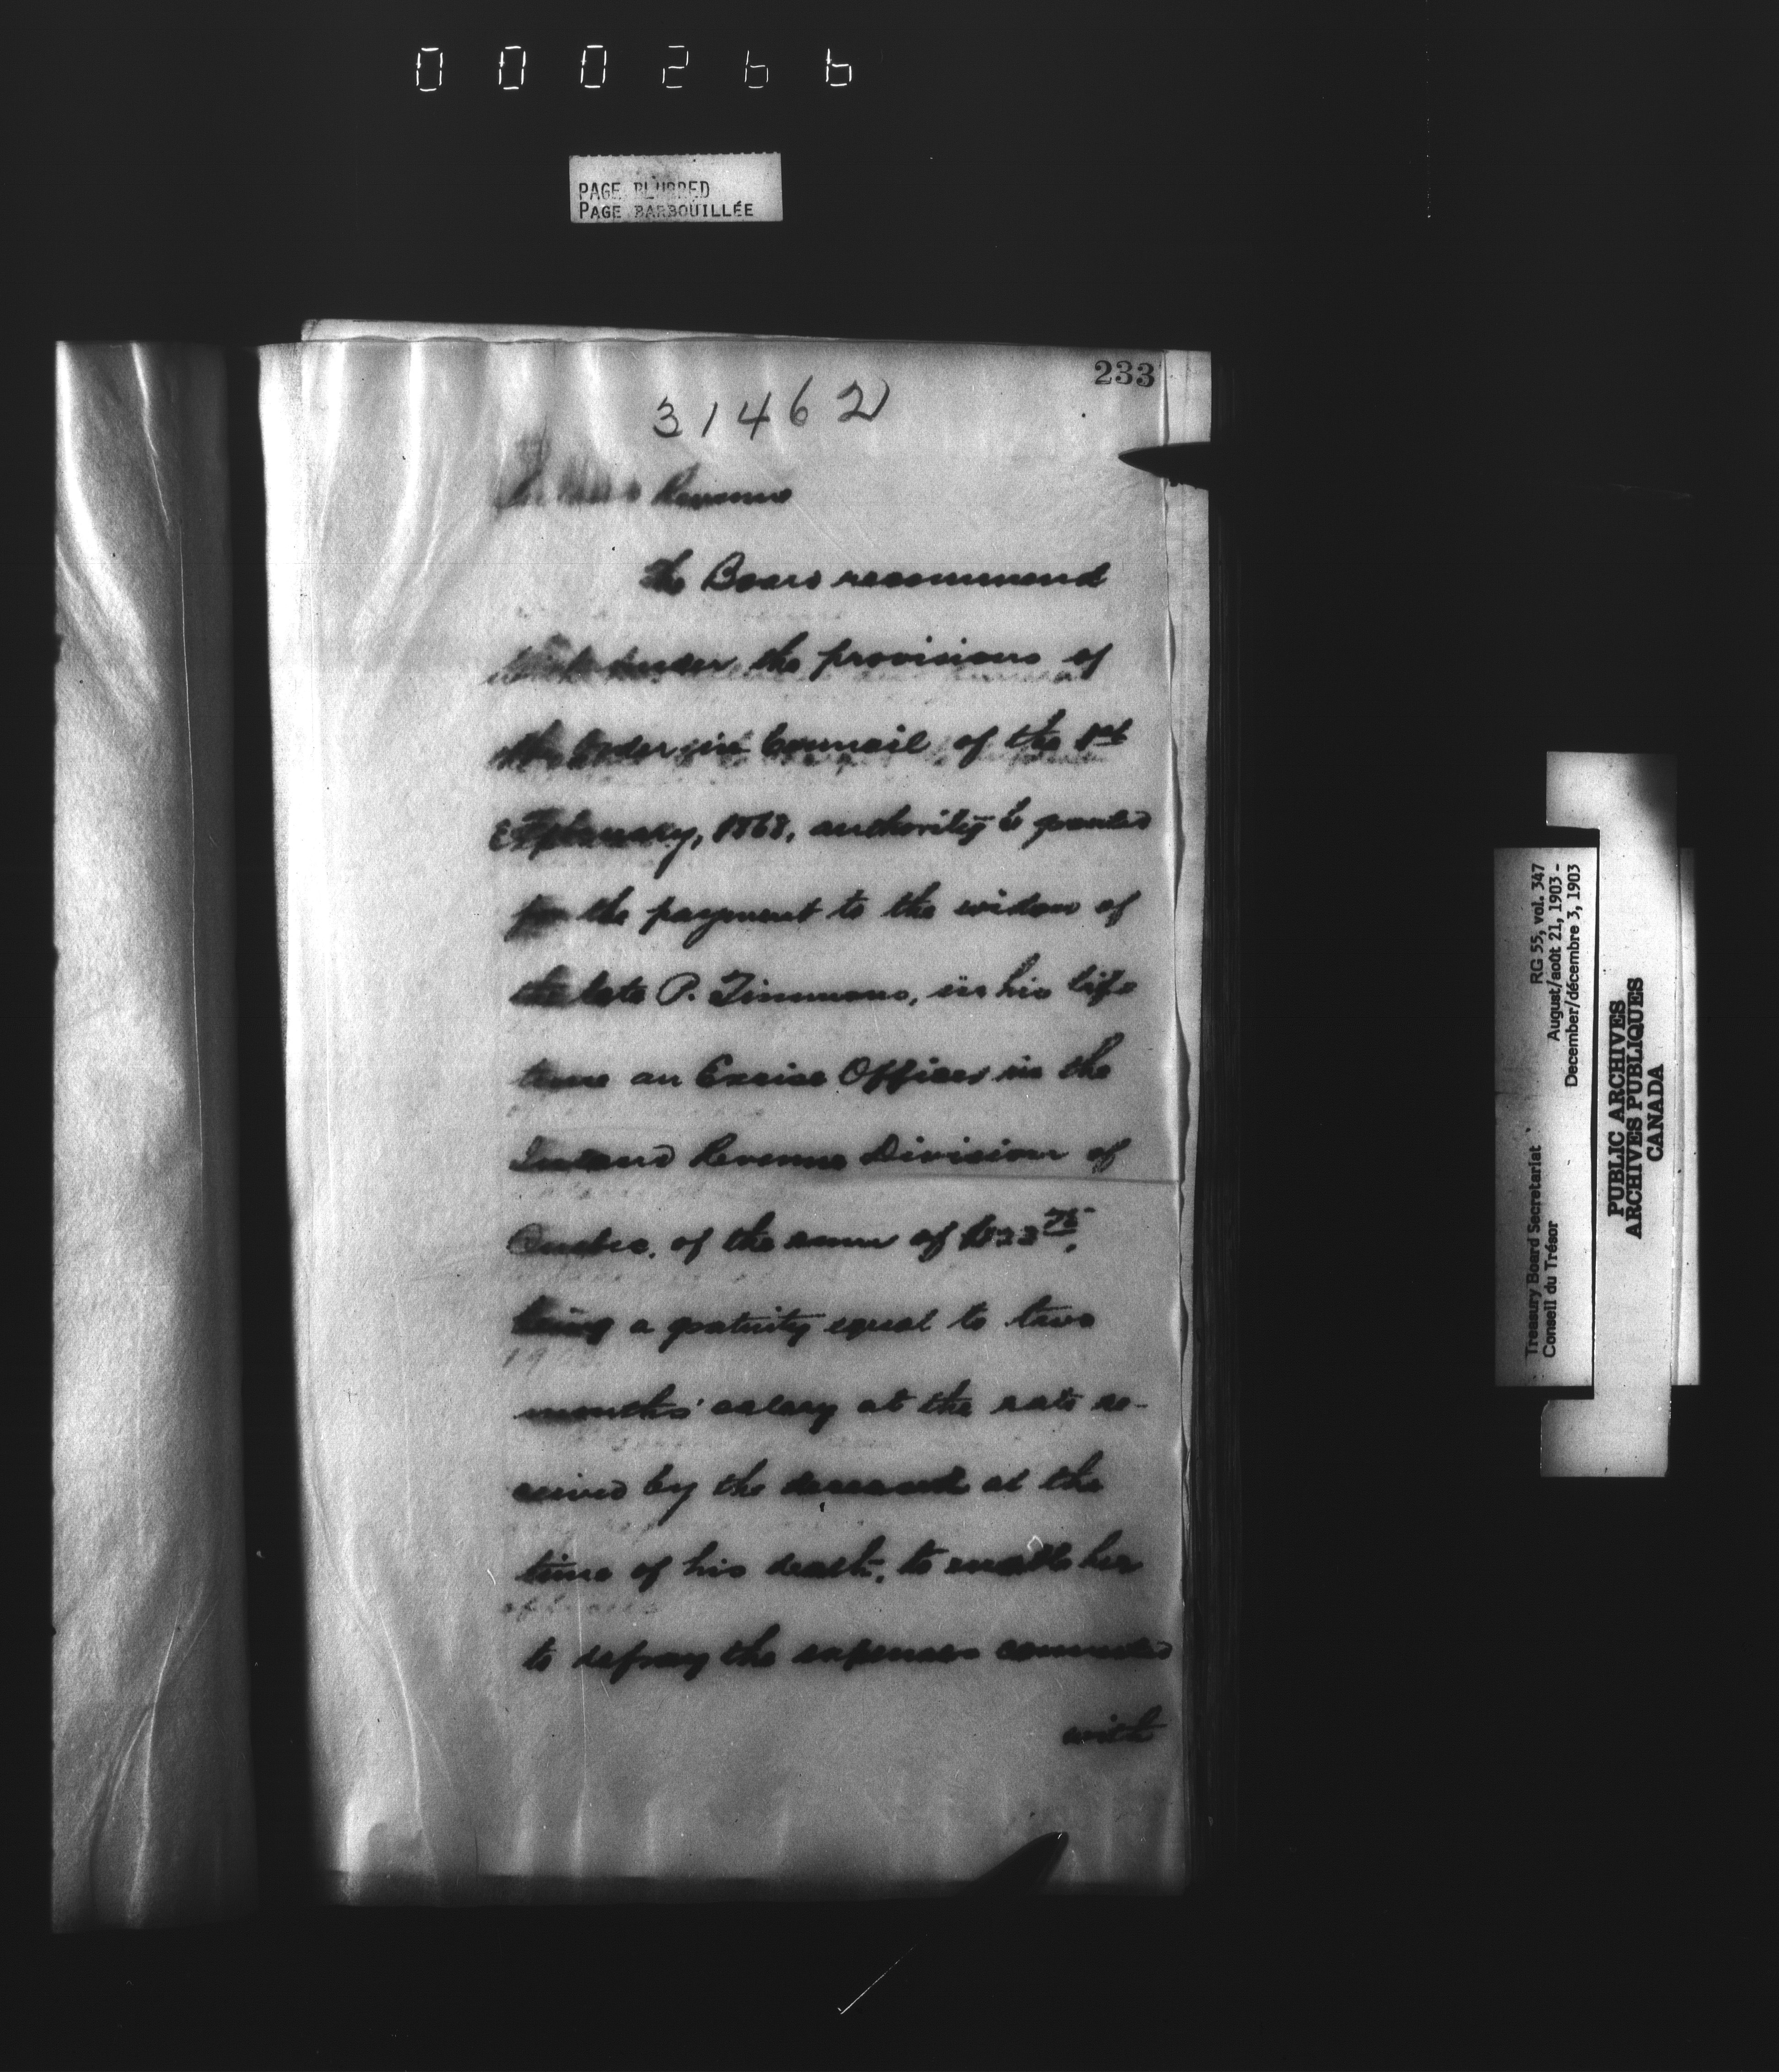 000266
PAGE BLURRED
PAGE BARBOUILLÉE
233
31462
Inland Revenue
The Board recommend
that under the provisions of
the Order in Council of the 1st
February, 1868, authority be granted
for the payment to the widow of
the late P. Timmons, in his life
time an Excise Officer in the
Inland Revenue Division of
Quebec, of the sum of
being a gratuity equal to two
months' salary at the rate re-
ceived by the deceased at the
time of his death, to enable her
to defray the expenses connected
with
Treasury Board Secretariat RG 55, vol. 347
Conseil du Trésor August/août 21, 1903 -
December/décembre 3, 1903
PUBLIC ARCHIVES
ARCHIVES PUBLIQUES
CANADA